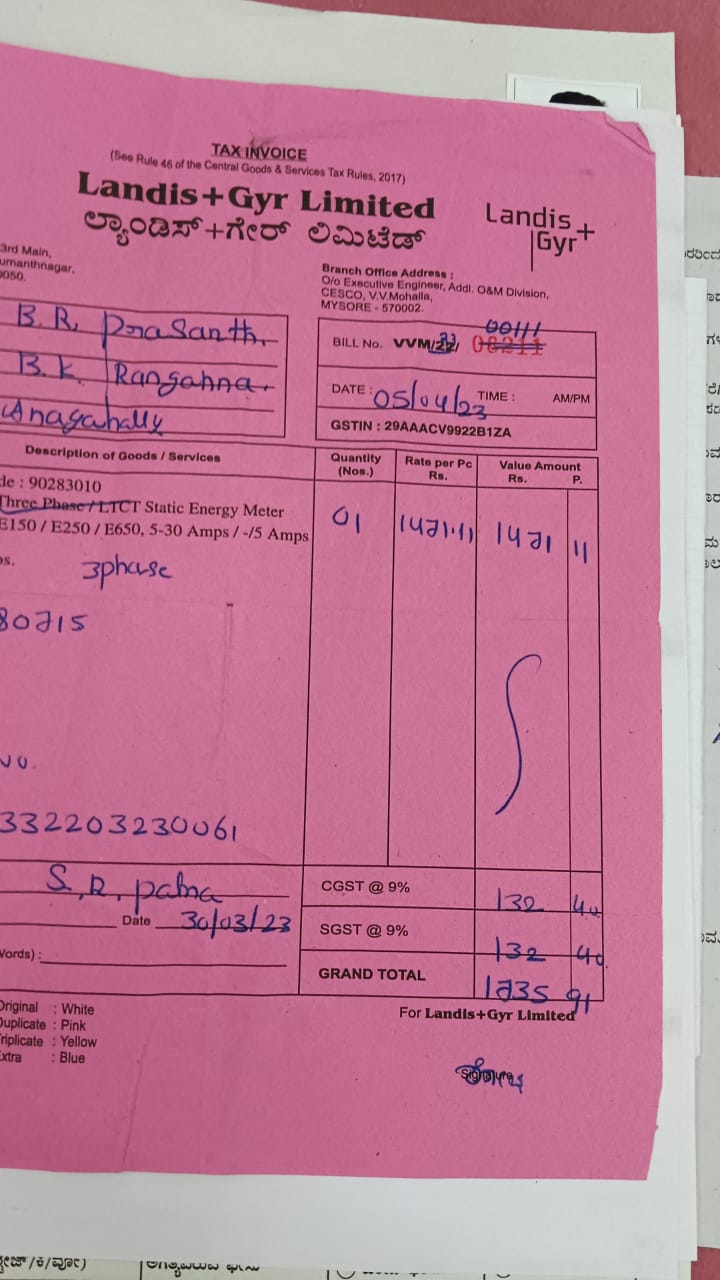 TAX INVOICE
(See Rule 46 of the Central Goods & Services Tax Rules, 2017)
Landis+Gyr Limited
ಲ್ಯಾಂಡಿಸ್+ಗೇರ್ ಲಿಮಿಟೆಡ್
Landis+
Gyr
3rd Main,
umanthnagar,
0050.
Branch Office Address :
O/o Executive Engineer, Addl. O&M Division,
CESCO, V.V.Mohalla,
MYSORE - 570002.
B.R. Prasanth.
B.K. Rangahna.
Anagahally
00111
BILL No. VVM/ 08211
DATE : 05/04/23 TIME : AM/PM
GSTIN : 29AAACV9922B1ZA
Description of Goods / Services
Quantity (Nos.)
Rate per Pc Rs.
Value Amount Rs. P.
de : 90283010
Three Phase / LTCT Static Energy Meter
E150 / E250 / E650, 5-30 Amps / -/5 Amps
01 1471.11 1471 11
os.
3phase
80715
No.
332203230061
S.R. patna
Date 30/03/23
Words) :
CGST @ 9% 132 40
SGST @ 9% 132 40
GRAND TOTAL 1735 91
Original : White
Duplicate : Pink
Triplicate : Yellow
Extra : Blue
For Landis+Gyr Limited